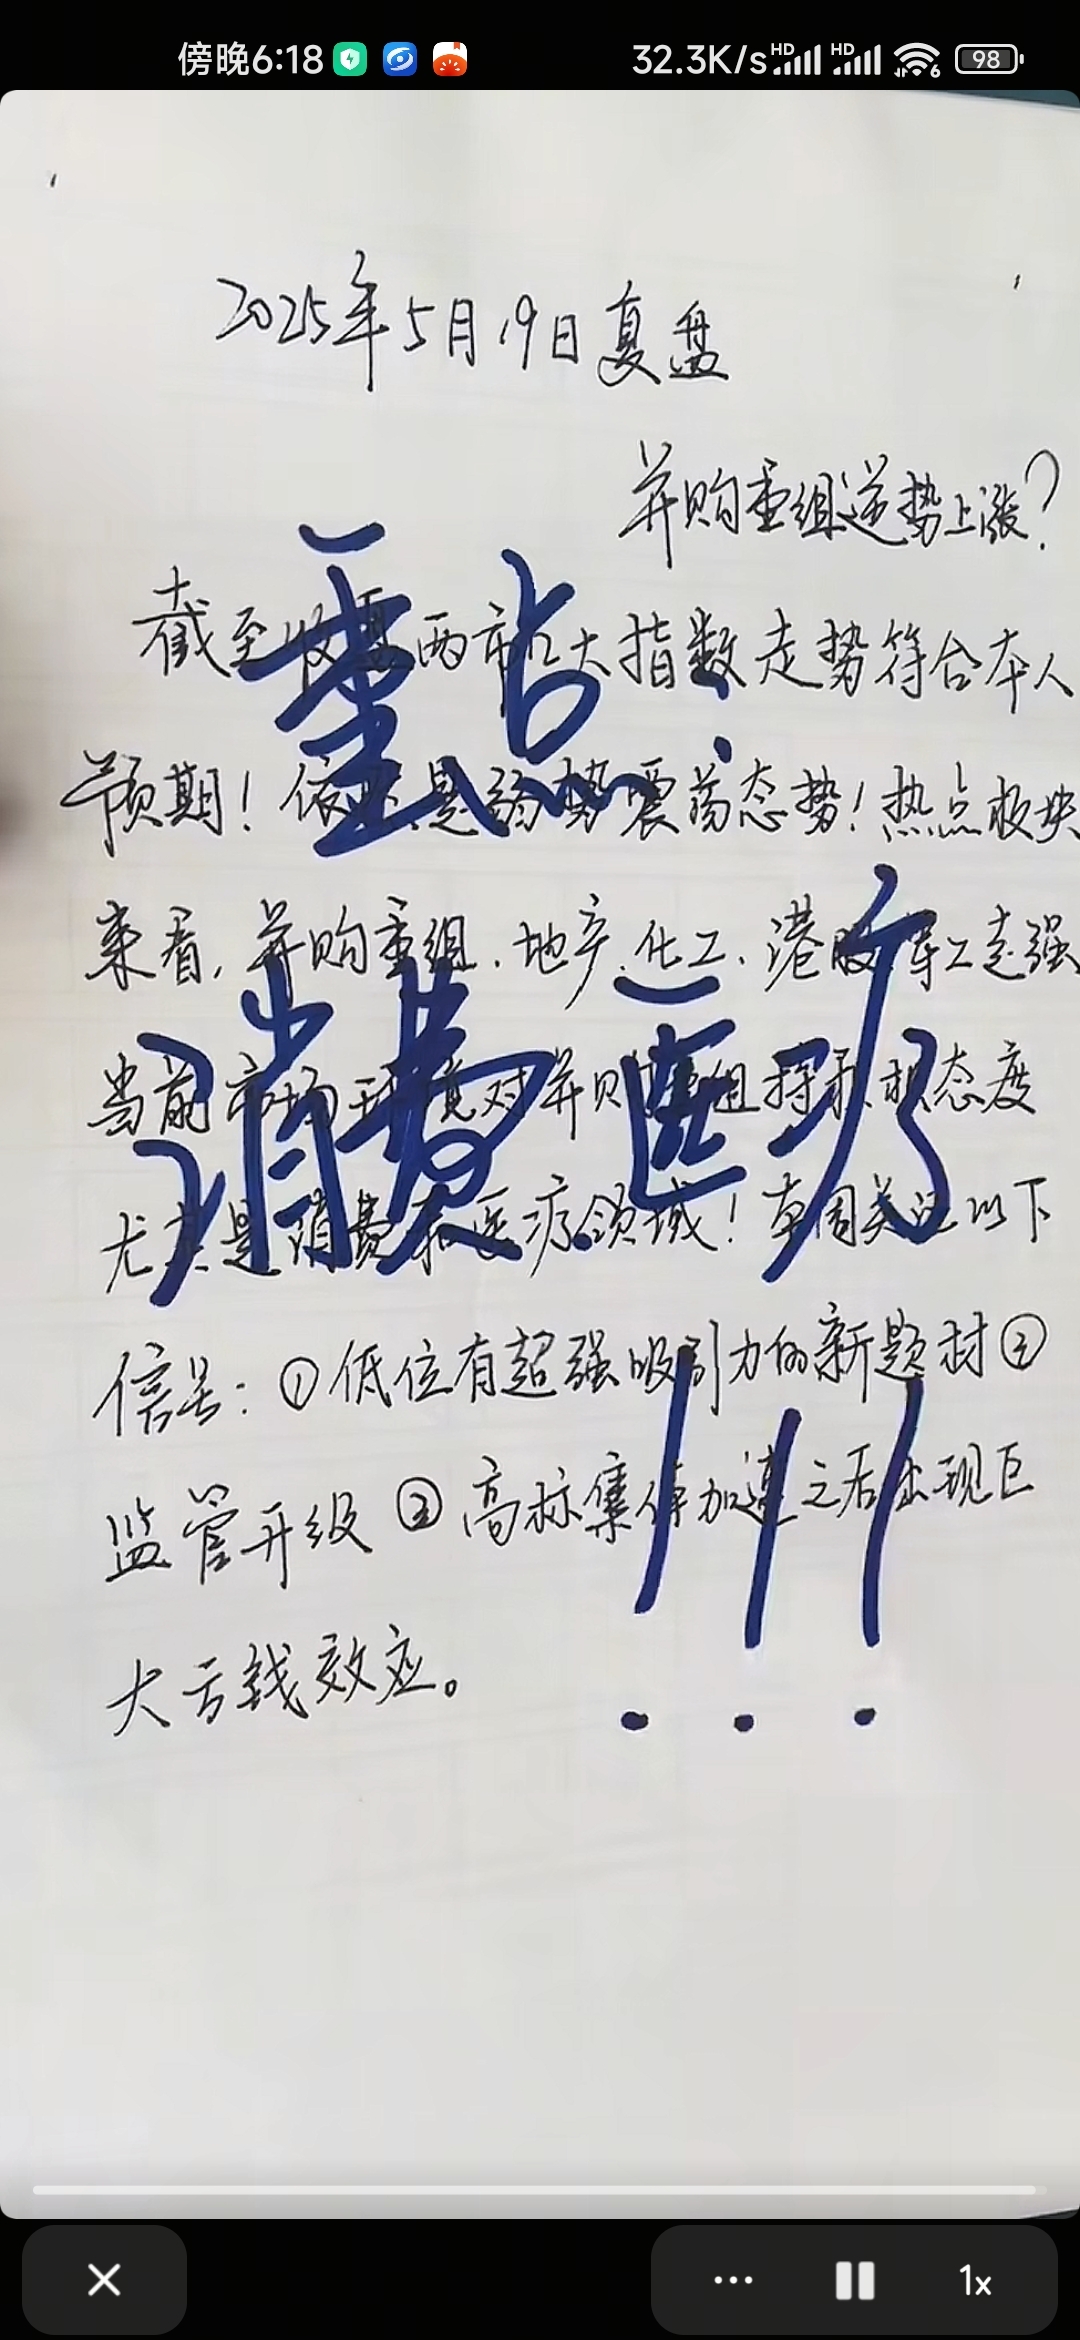 傍晚6:18 32.3K/s HD HD 6 98
2025年5月19日复盘
并购重组逆势上涨?
截至收盘两市大指数走势符合本人
预期!依然是弱势震荡态势!热点板块
来看,并购重组、地产、化工、港股、军工走强
当前市场环境对并购重组持积极态度
尤其是消费和医疗领域!本周关注以下
信号:①低位有超强吸引力的新题材②
监管升级③高标集体加速之后出现巨
大亏钱效应。
重点:
消费.医疗
!!!
1x